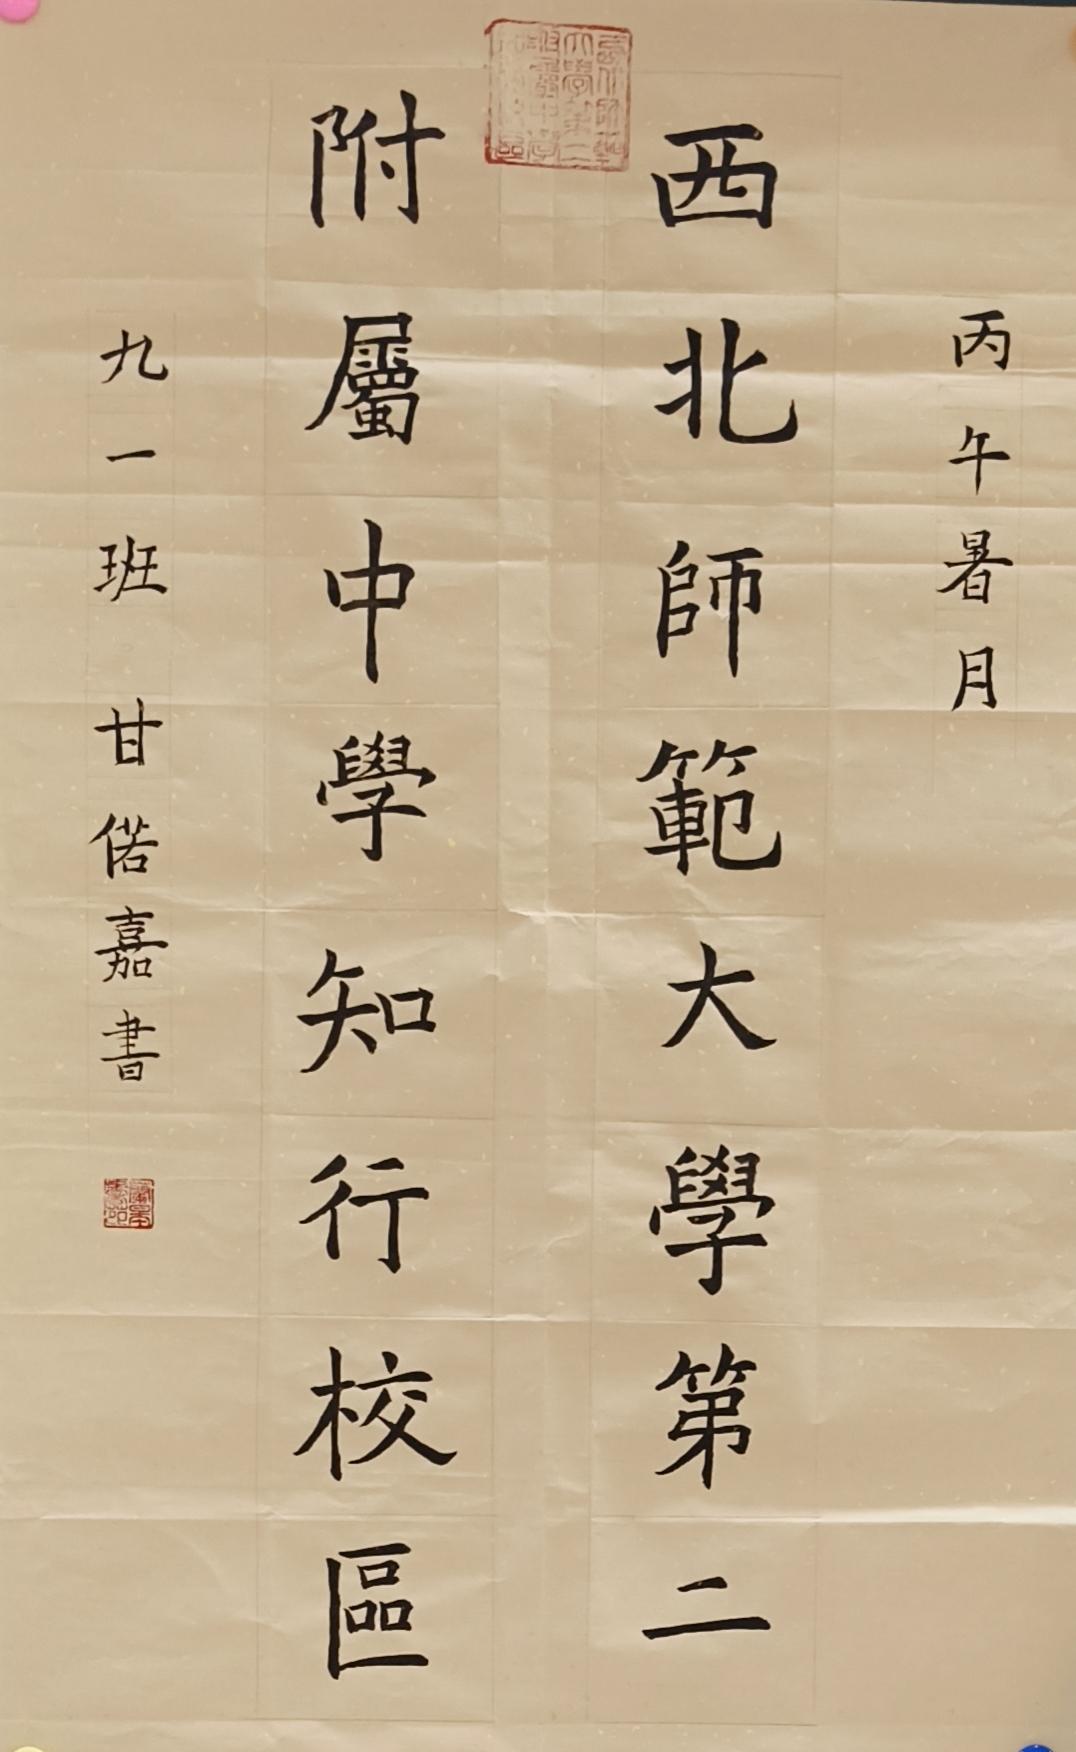 丙午暑月
西北師範大學第二
附屬中學知行校區
九一班 甘偌嘉書